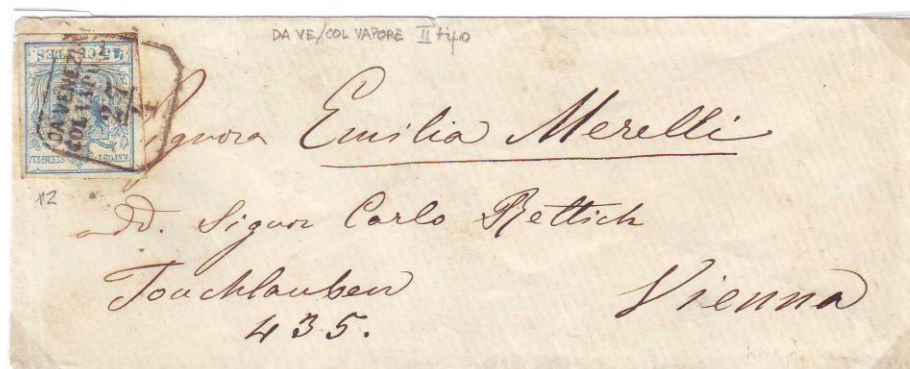 DA VE/COL VAPORE II tipo
45 CENTES
DA VENEZIA
COL VAPORE
27/4
Signora Emilia Merelli
add. Signor Carlo Rettich
Touchlauben
435.
Vienna